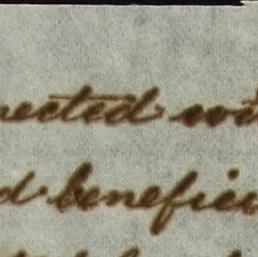 nected wi
d beneficia